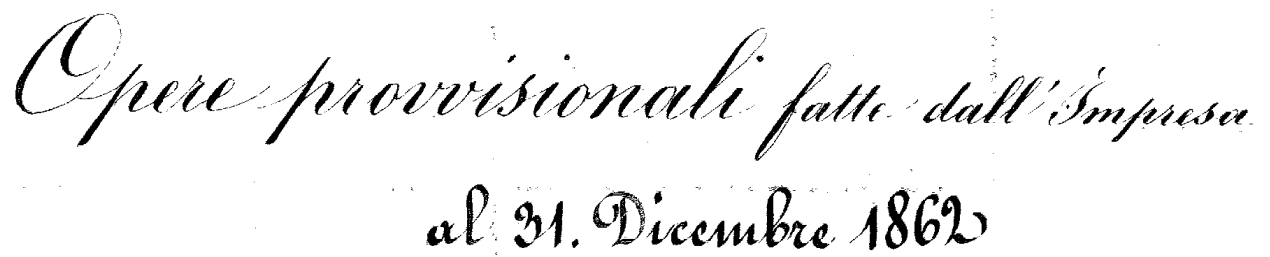 Opere provvisionali fatte dall'Impresa
al 31. Dicembre 1862